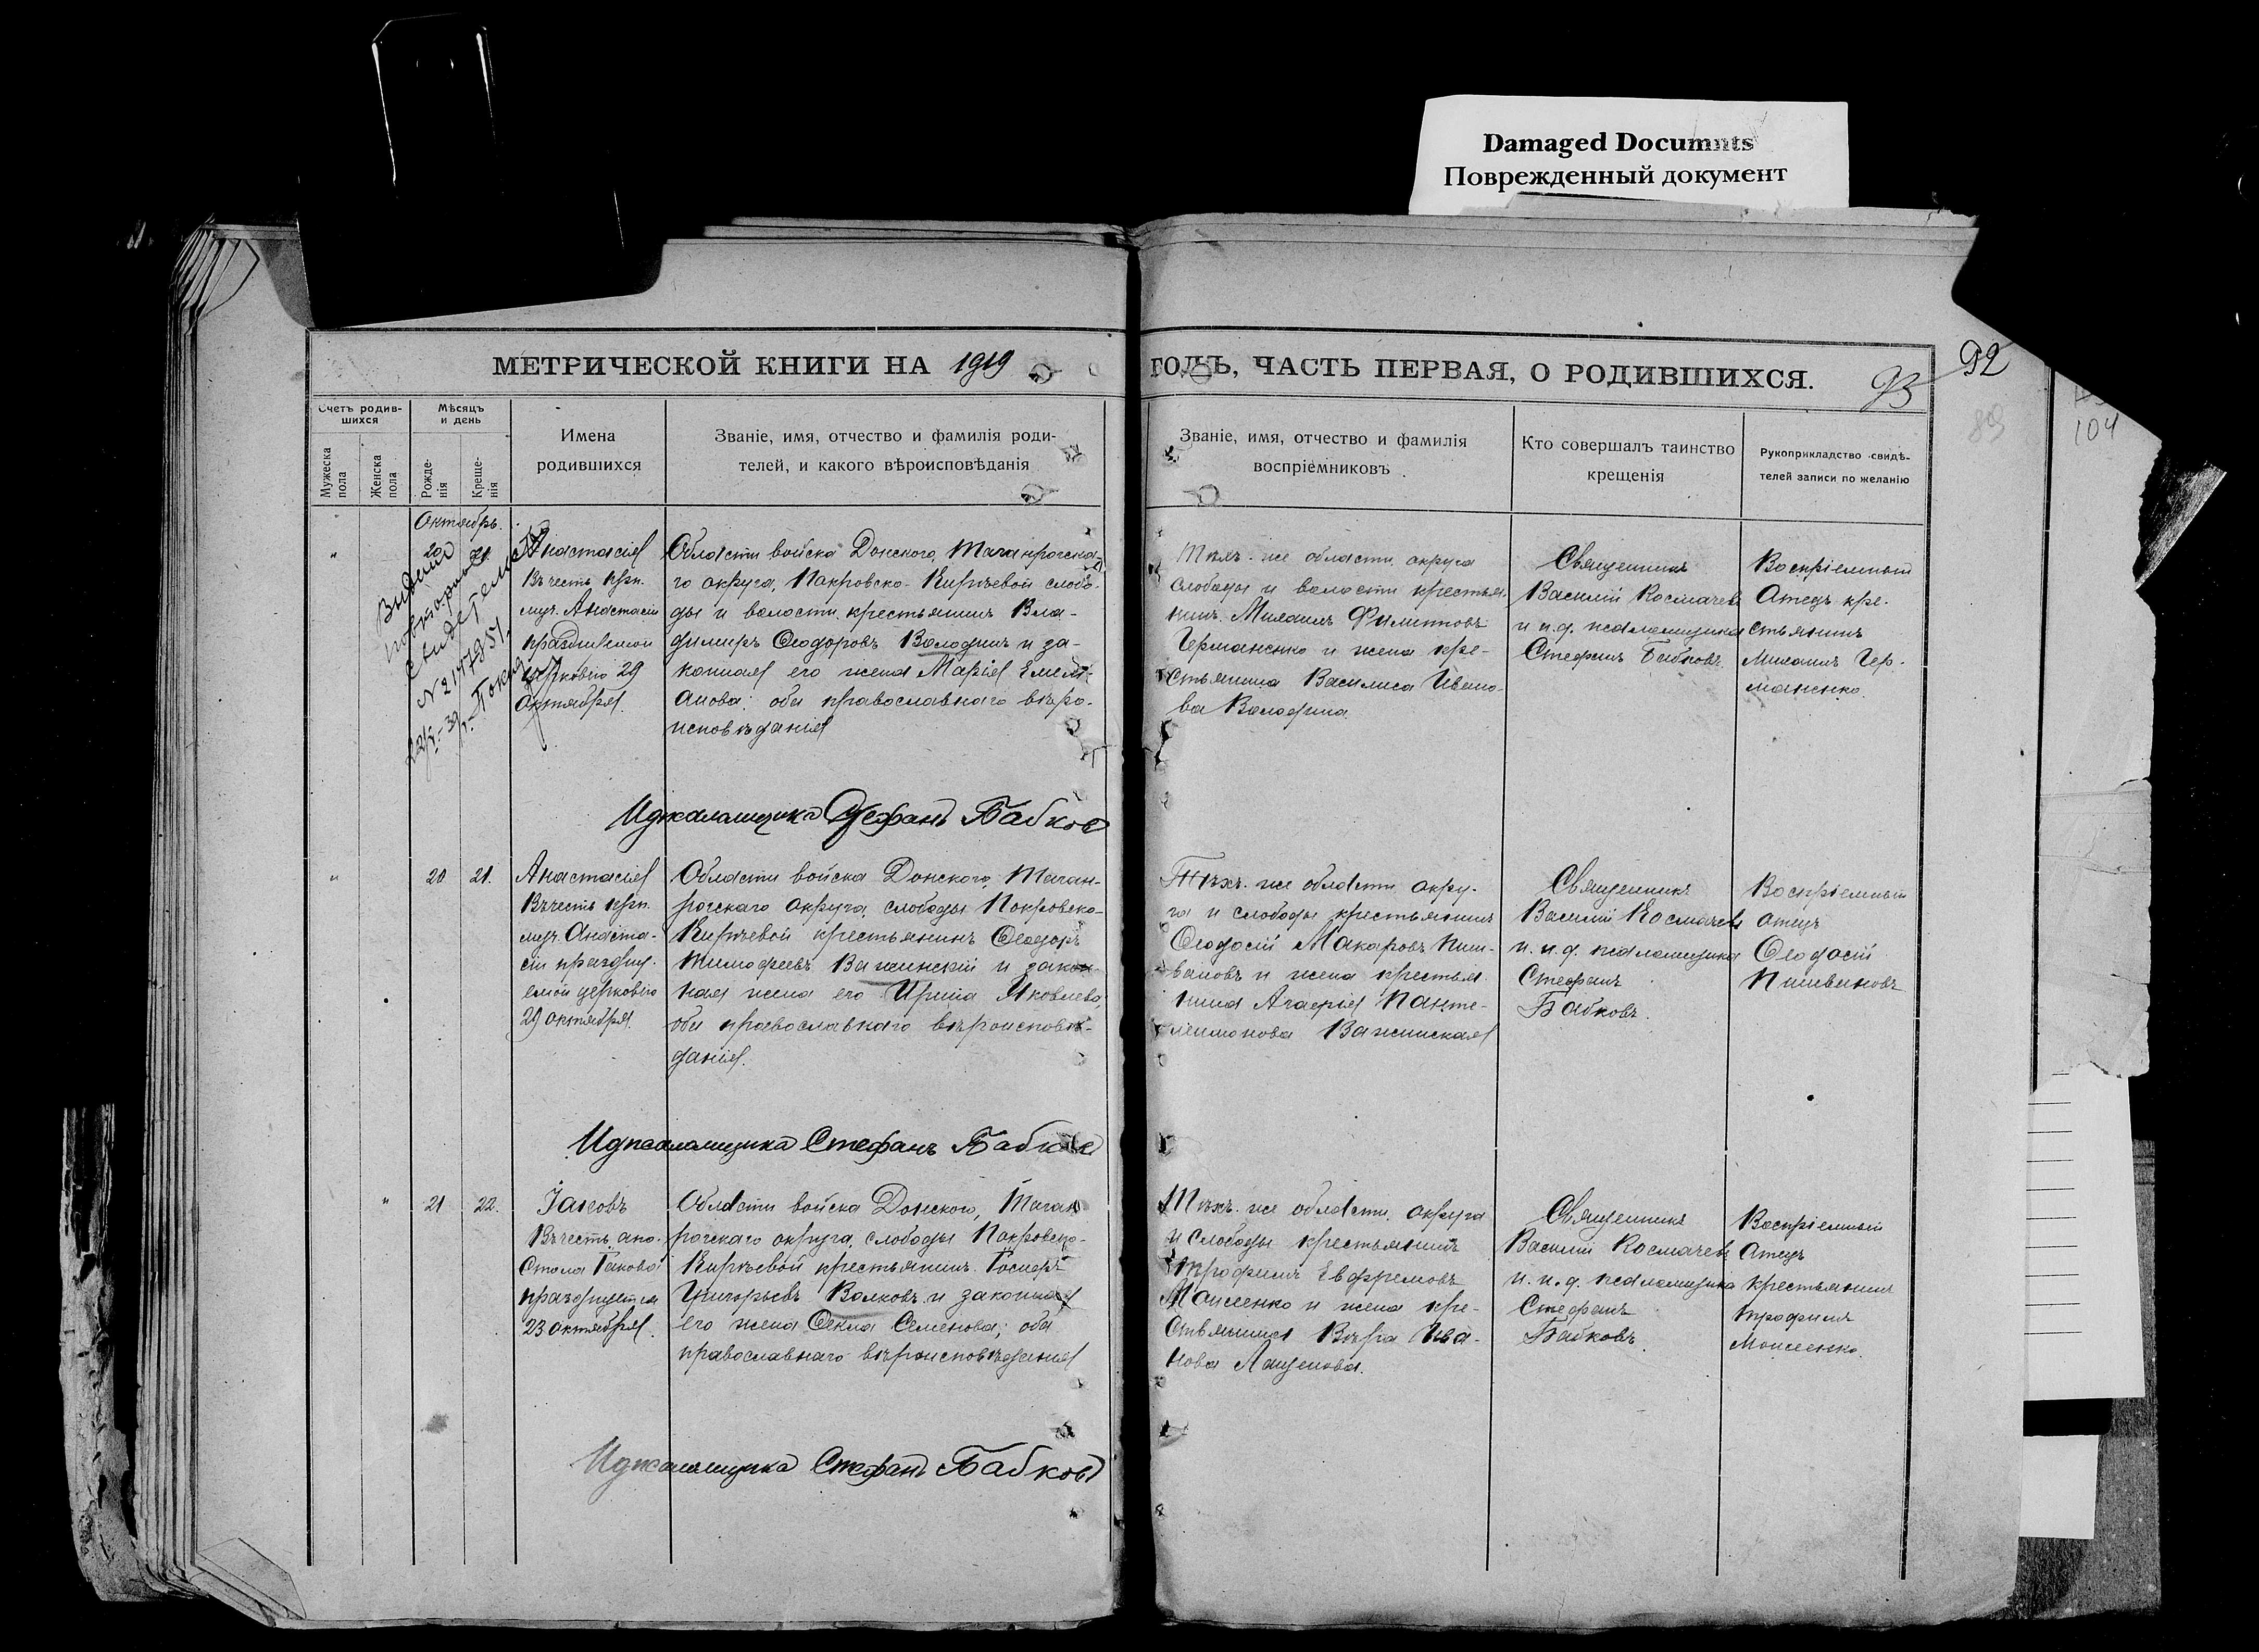 Damaged Documnts
Поврежденный документ
МЕТРИЧЕСКОЙ КНИГИ НА 1919
ГОДЪ, ЧАСТЬ ПЕРВАЯ, О РОДИВШИХСЯ.
93
92
89
104
Счетъ родив-
шихся
Мужеска
пола
Женска
пола
Мѣсяцъ
и день
Рожде-
нія
Креще-
нія
Имена
родившихся
Званіе, имя, отчество и фамилія роди-
телей, и какого вѣроисповѣданія
Званіе, имя, отчество и фамилія
воспріемниковъ
Кто совершалъ таинство
крещенія
Рукоприкладство свидѣ-
телей записи по желанію
Октябрь.
Выдано
повторное
свидетельство
20 21
Анастасія
Въ честь прп.
муч. Анастасіи
празднуемой
церковію 29
Октября.
Области войска Донского, Таганрогска-
го округа, Покровско-Кирѣевой слобо-
ды и волости крестьянинъ Вла-
димиръ Ѳеодоровъ Володинъ и за-
конная его жена Марія Емель-
анова; оба православнаго вѣро-
исповѣданія
Тѣхъ-же области, округа
слободы и волости крестья-
нинъ Михаилъ Филипповъ
Германенко и жена кре-
стьянина Василиса Ивано-
ва Володина.
Священникъ
Василій Космачевъ
и и.д. псаломщика
Стефанъ Бабковъ.
Воспріемный
Отецъ кре-
стьянинъ
Михаилъ Гер-
маненко.
Идпсаломщика Стефанъ Бабков
" 20 21.
Анастасія
Въ честь прп.
муч. Анаста-
сіи праздну-
емой церковію
29 октября.
Области войска Донского, Таган-
рогскаго округа, слободы Покровско-
Кирѣевой крестьянинъ Ѳеодоръ
Тимофеевъ Важинскій и закон-
ная жена его Ирина Яковлева;
оба православнаго вѣроисповѣ-
данія.
Тѣхъ-же области, окру-
га и слободы крестьянинъ
Ѳеодосій Макаровъ Пши-
вановъ и жена крестья-
нина Агафія Панте-
леимонова Важинская
Священникъ
Василій Космачевъ
и. и.д. псаломщика
Стефанъ
Бабковъ.
Воспріемный
отецъ
Ѳеодосій
Идпсаломщика Стефанъ Бабков
" 21 22.
Іаковъ
Въ честь апо-
стола Іакова
празднуется
23 октября.
Области войска Донского, Таган
рогскаго округа, слободы Покровско-
Кирѣевой крестьянинъ Іосифъ
Григорьевъ Волковъ и законная
его жена Ѳекла Семенова; оба
православнаго вѣроисповѣданія
Тѣхъ-же области, округа
и слободы крестьянинъ
Трофимъ Евфремовъ
Моисеенко и жена кре-
стьянина Вѣра Ива-
нова Лащенова.
Священникъ
Василій Космачевъ
и. и.д. псаломщика
Стефанъ
Бабковъ.
Воспріемный
Отецъ
крестьянинъ
Трофимъ
Моисеенко.
Идпсаломщика Стефанъ Бабковъ